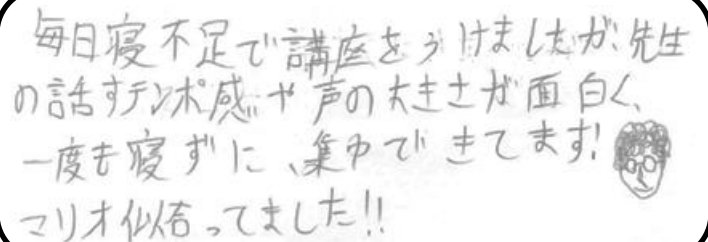 毎日寝不足で講座をうけましたが、先生
の話すテンポ感や声の大きさが面白く、
一度も寝ずに、集中できてます!
マリオ似合ってました!!